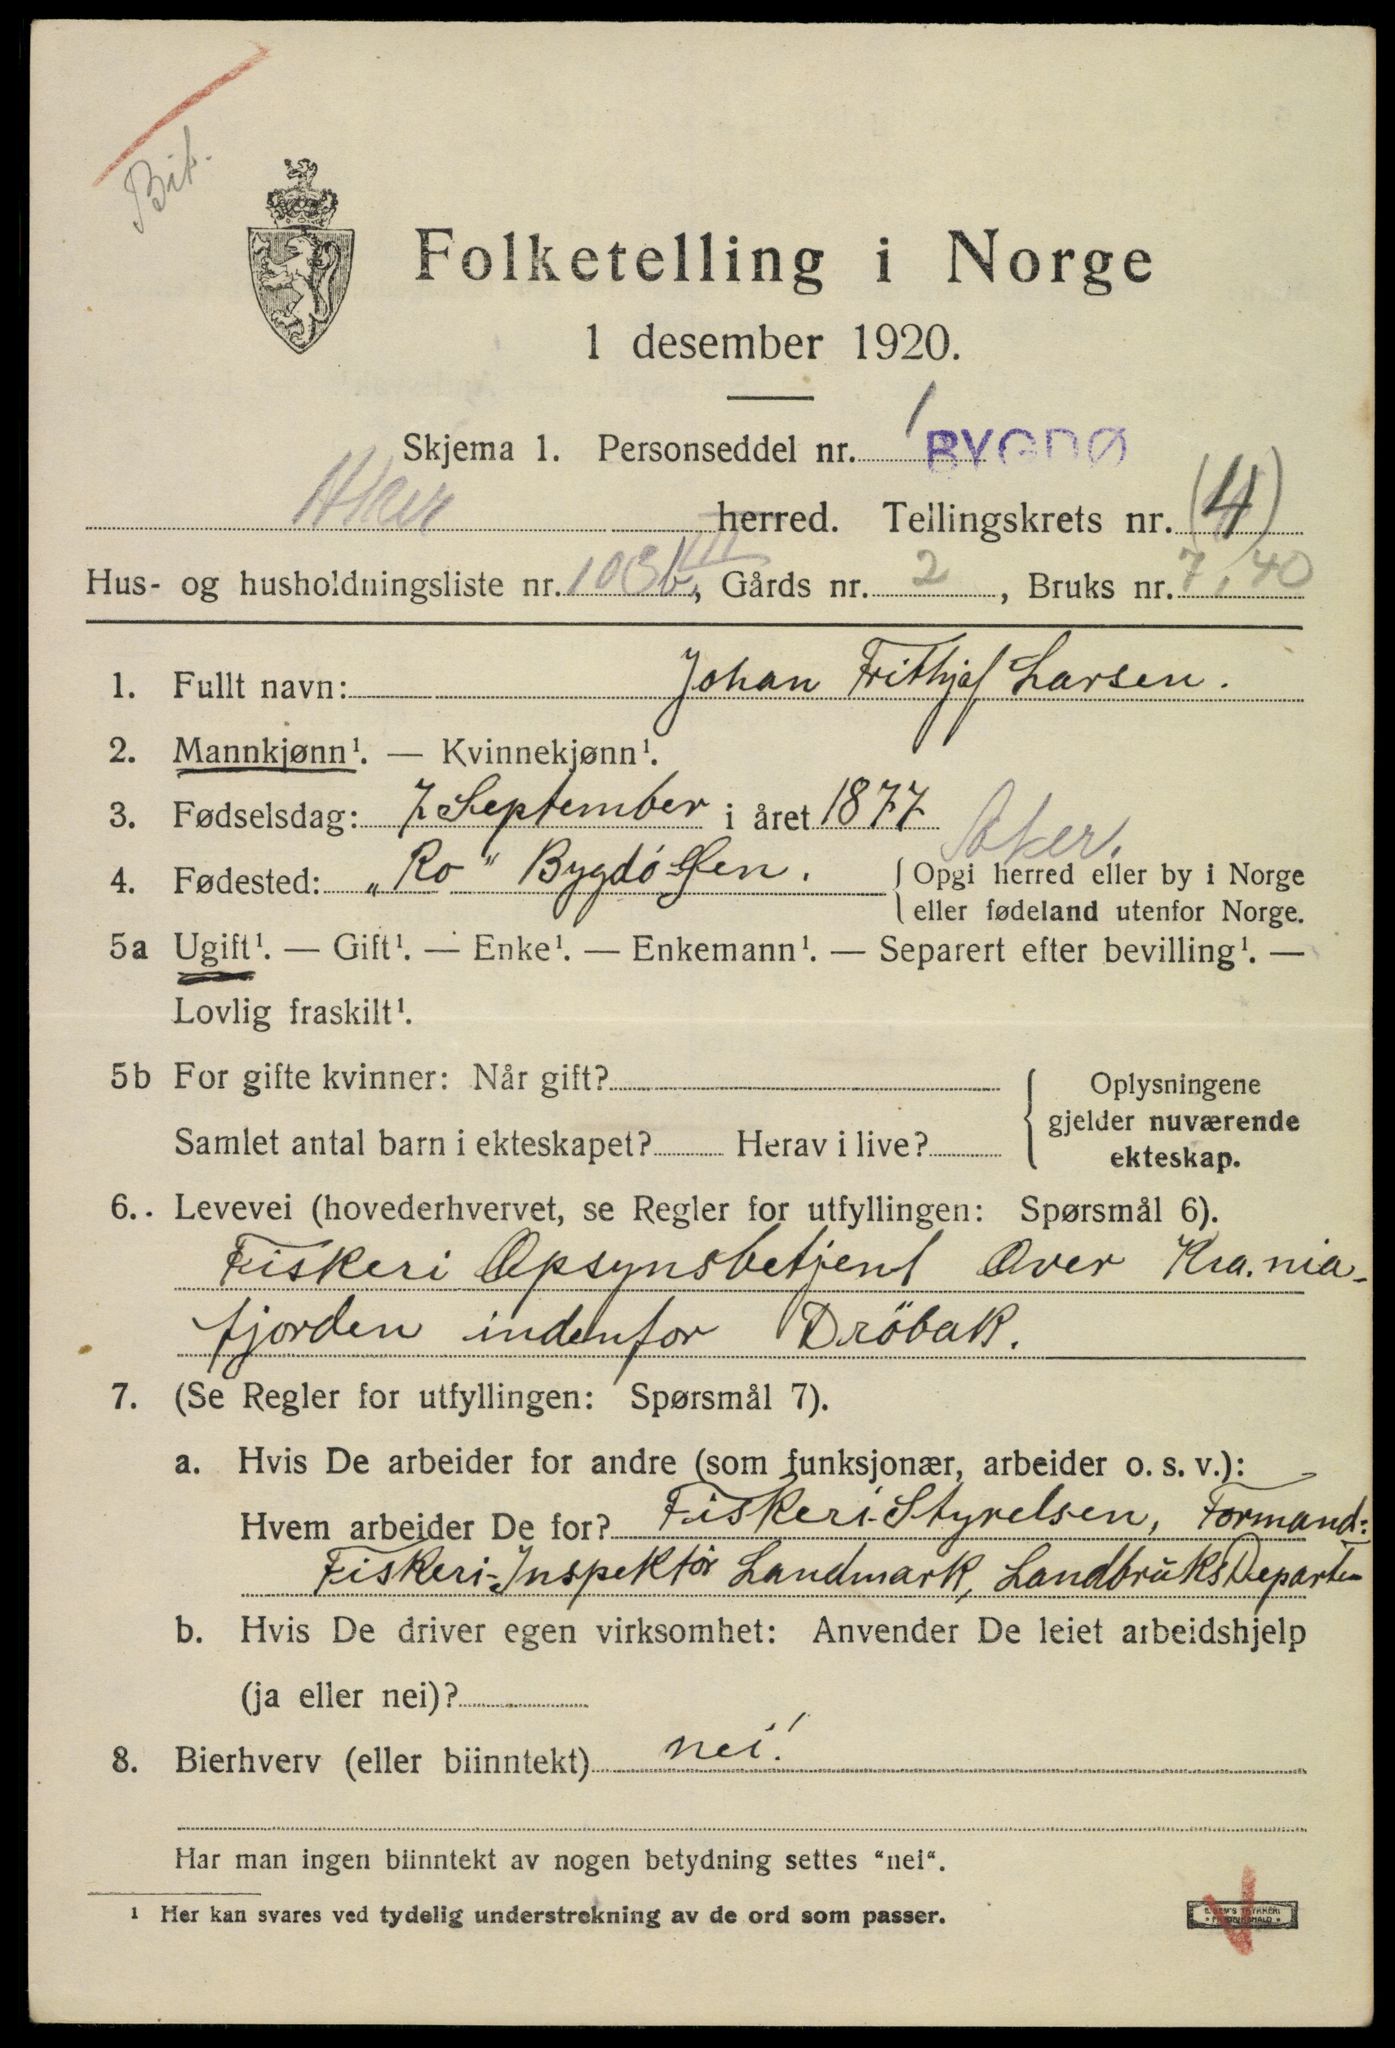 Bit.
Folketelling i Norge
1 desember 1920.
Skjema 1. Personseddel nr. 1 BYGDØ
Aker herred. Tellingskrets nr. (4)
Hus- og husholdningsliste nr. 103b VII, Gårds nr. 2, Bruks nr. 7,40
1. Fullt navn: Johan Frithjof Larsen.
2. Mannkjønn¹. — Kvinnekjønn¹.
3. Fødselsdag: 7 September i året 1877
Aker.
4. Fødested: „Ro" Bygdö Öen. Opgi herred eller by i Norge
eller fødeland utenfor Norge.
5a Ugift¹. — Gift¹. — Enke¹. — Enkemann¹. — Separert efter bevilling¹. —
Lovlig fraskilt¹.
5b For gifte kvinner: Når gift?
Samlet antal barn i ekteskapet? Herav i live?
Oplysningene
gjelder nuværende
ekteskap.
6. Levevei (hovederhvervet, se Regler for utfyllingen: Spørsmål 6).
Fiskeri Opsynsbetjent Over Kra.nia-
fjorden indenfor Dröbak.
7. (Se Regler for utfyllingen: Spørsmål 7).
a. Hvis De arbeider for andre (som funksjonær, arbeider o. s. v.):
Hvem arbeider De for? Fiskeri-Styrelsen, Formand:
Fiskeri-Inspektör Landmark, LandbruksDeparte-
b. Hvis De driver egen virksomhet: Anvender De leiet arbeidshjelp
(ja eller nei)?
8. Bierhverv (eller biinntekt) nei!
Har man ingen biinntekt av nogen betydning settes "nei".
¹ Her kan svares ved tydelig understrekning av de ord som passer.